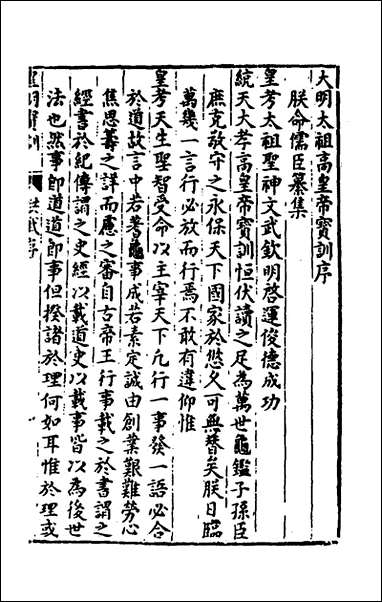 大明太祖高皇帝寶訓序
朕命儒臣纂集
皇考太祖聖神文武欽明啓運俊德成功
統天大孝高皇帝寶訓恒伏讀之足為萬世龜鑑子孫臣
庶克敬守之永保天下國家於悠久可無替矣朕日臨
萬幾一言行必放而行焉不敢有違仰惟
皇考天生聖智受命以主宰天下凡行一事發一語必合
於道故言中若蓍龜事成若素定誠由創業艱難勞心
焦思籌之詳而慮之審自古帝王行事載之於書謂之
經書於紀傳謂之史經以載道史以載事皆以為後世
法也然事即道道即事但揆諸於理何如耳惟於理或